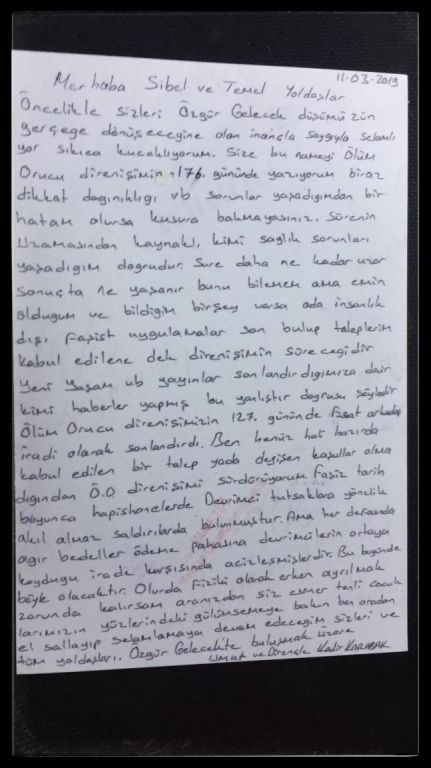 11-03-2019
Merhaba Sibel ve Temel Yoldaşlar
Öncelikle sizleri Özgür Gelecek düşümüzün
gerçeğe dönüşeceğine olan inançla saygıyla selamlı
yor sıkıca kucaklıyorum. Size bu nameyi Ölüm
Orucu direnişimin 176. gününde yazıyorum biraz
dikkat dagınıklıgı vb sorunlar yaşadıgımdan bir
hatam olursa kusura bakmayasınız. Sürenin
Uzamasından kaynaklı, kimi saglık sorunları
yaşadıgım dogrudur. Süre daha ne kadar uzar
sonuçta ne yaşanır bunu bilemem ama emin
oldugum ve bildigim birşey varsa oda insanlık
dışı Faşist uygulamalar son bulup taleplerim
kabul edilene dek direnişimin sürecegidir
Yeni Yaşam vb yayınlar sonlandırdıgımıza dair
kimi haberler yapmış bu yanlıştır dogrusu şöyledir
Ölüm Orucu direnişimizin 127. gününde arkadaş
iradi olarak sonlandırdı. Ben henüz hali hazırda
kabul edilen bir talep yada degişen koşullar olma
dıgından Ö.O direnişimi sürdürüyorum Faşizm tarih
boyunca hapishanelerde Devrimci tutsaklara yönelik
akıl almaz saldırılarda bulunmuştur. Ama her defasında
agır bedeller ödeme pahasına devrimcilerin ortaya
koydugu irade karşısında acizleşmişlerdir. Bu bugünde
böyle olacaktır. Olurda fiziki olarak erken ayrılmak
zorunda kalırsam aranızdan siz esmer tenli çocuk
larımızın yüzlerindeki gülümsemeye bakın ben oradan
el sallayıp selamlamaya devam edecegim sizleri ve
tüm yoldaşları. Özgür Gelecekte buluşmak üzere
Umut ve Dirençle Kadir KARABAK